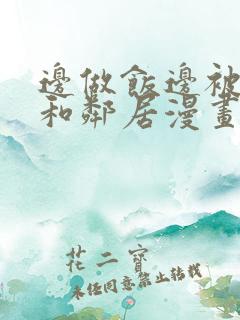 邊做飯邊被
和鄰居漫畫
花二寶
未經同意禁止轉載